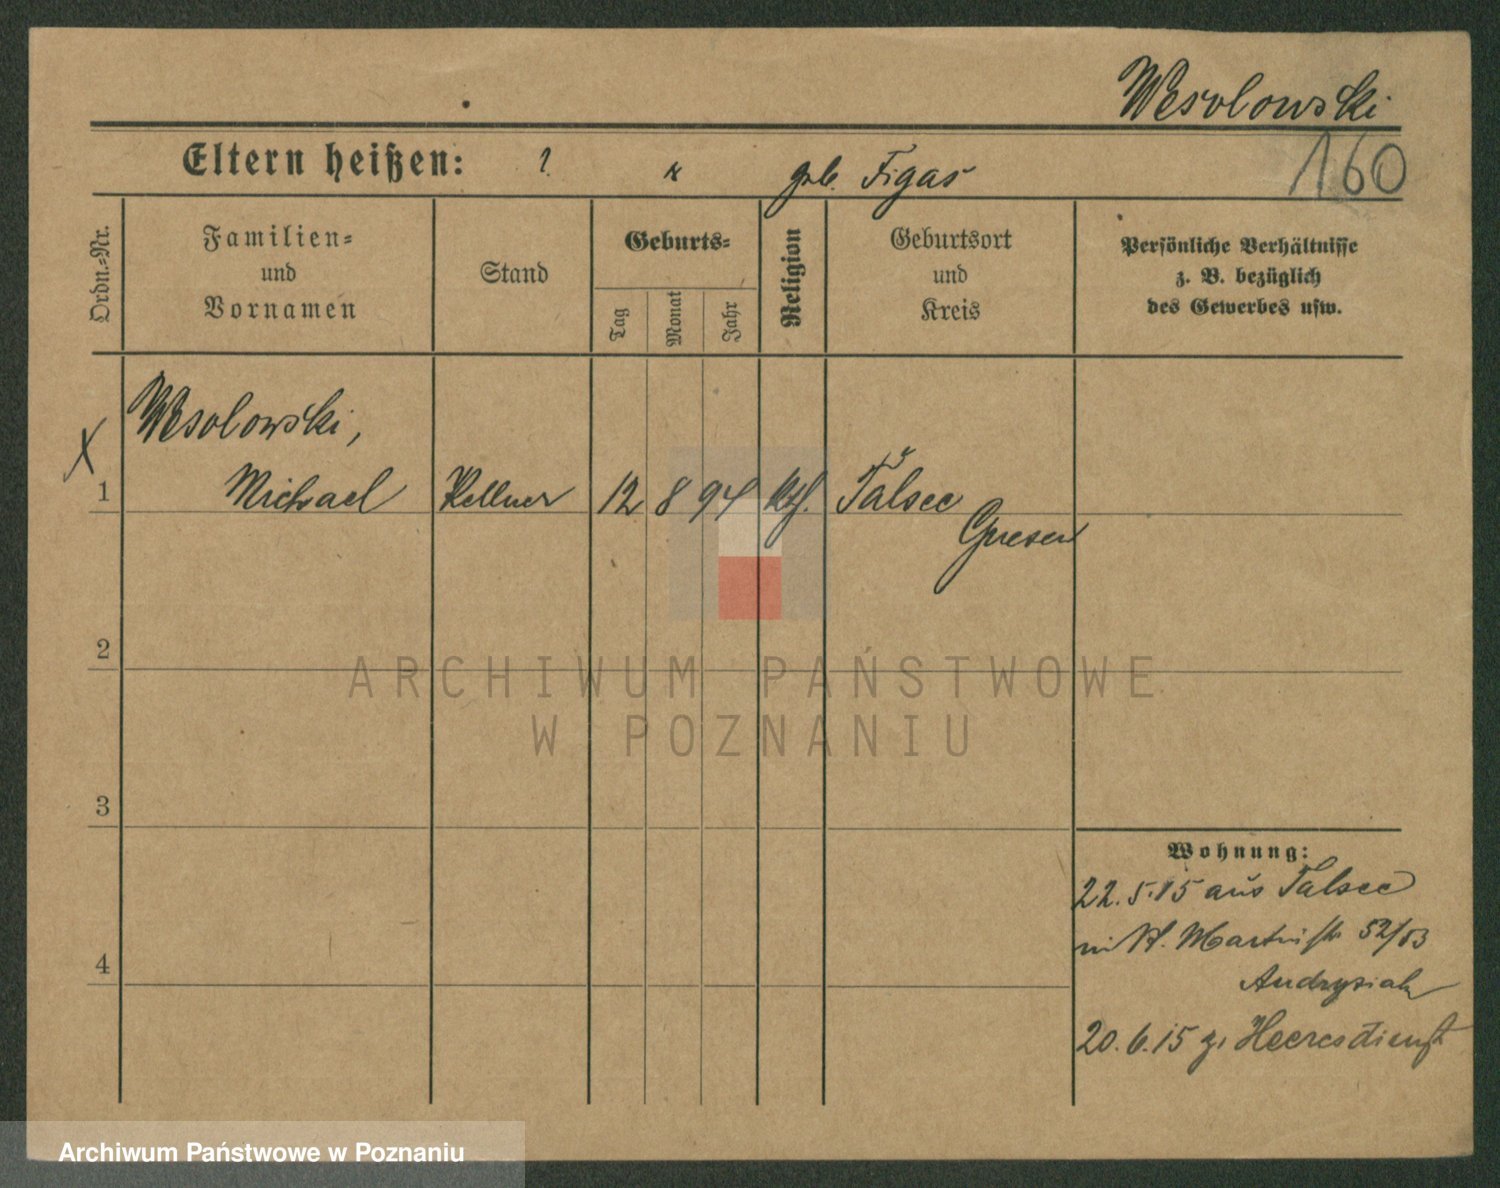 Wesolowski
160
Eltern heißen: ? u geb. Figas
Ordn.-Nr.
Familien-
und
Vornamen
Stand
Geburts-
Tag
Monat
Jahr
Religion
Geburtsort
und
Kreis
Persönliche Verhältnisse
z. B. bezüglich
des Gewerbes usw.
X
Wesolowski,
1 Michael Kellner 12 8 94 kth. Talsee
Gnesen
2
3
4
Wohnung:
22.5.15 aus Talsee
Martinstr 52/53
Andrysiak
20.6.15 z. Heeresdienst
ARCHIWUM PAŃSTWOWE
W POZNANIU
Archiwum Państwowe w Poznaniu